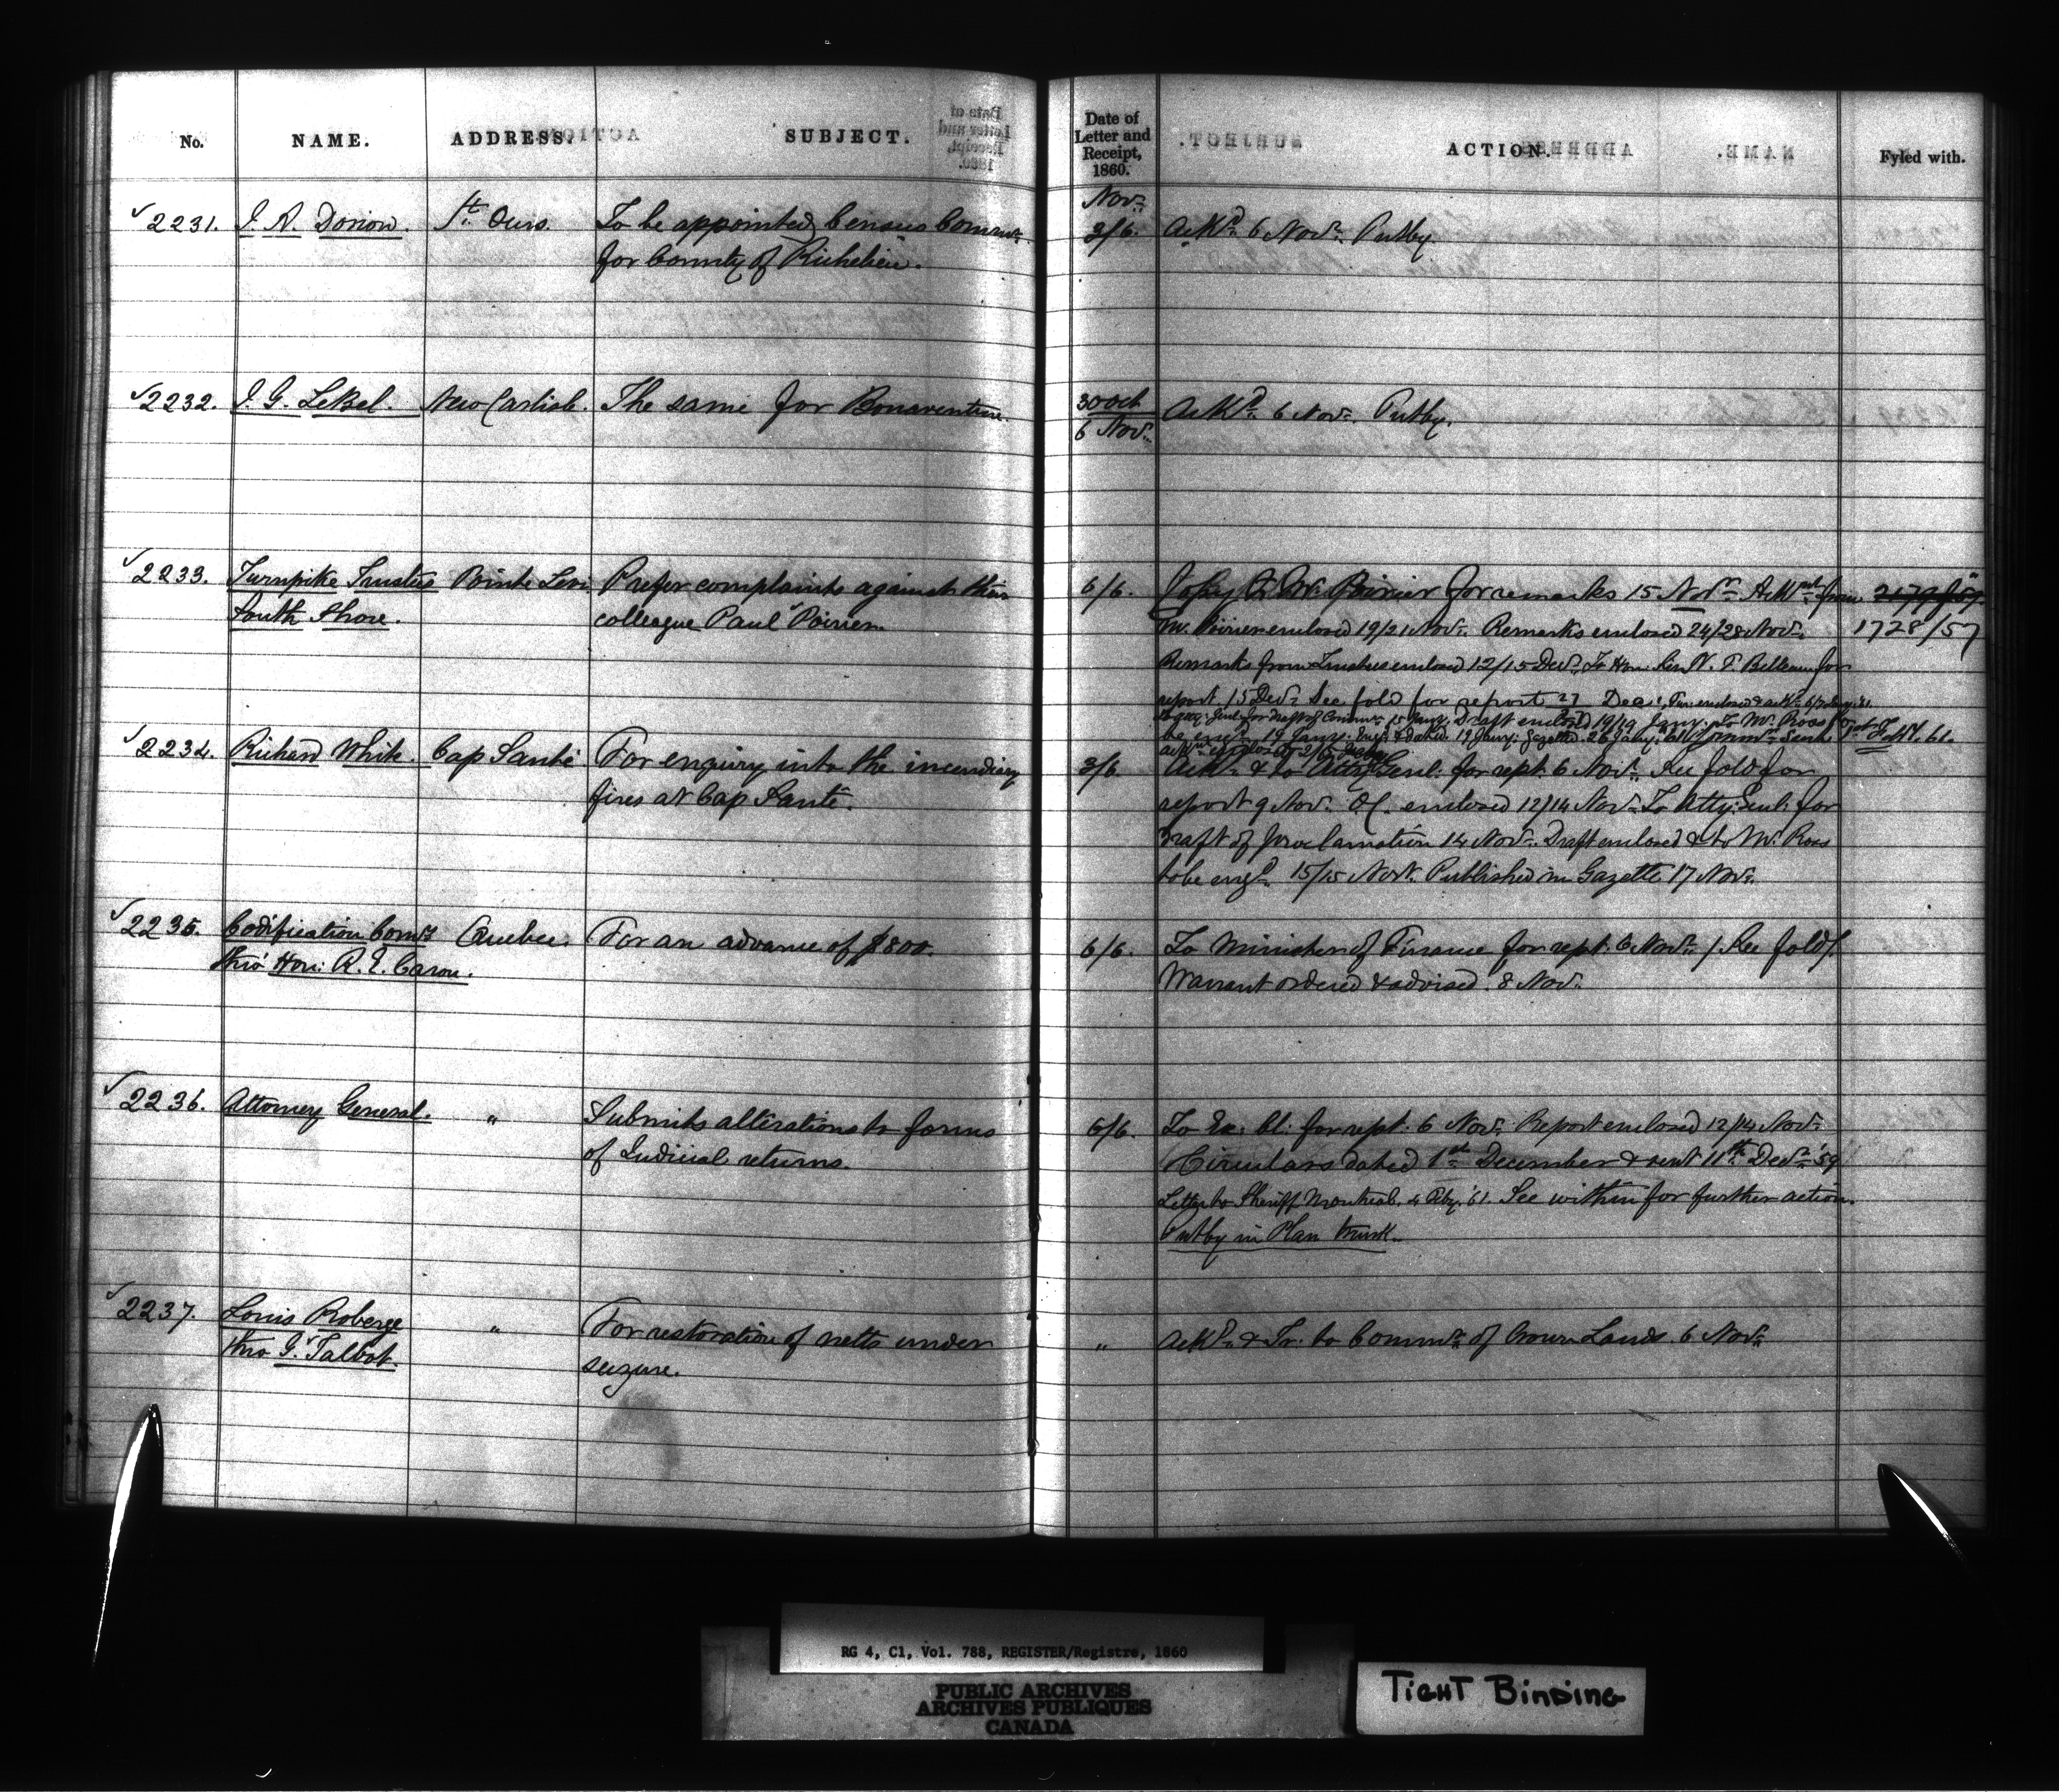 No. NAME. ADDRESS. SUBJECT. Date of Letter and Receipt, 1860. ACTION. Fyled with.
Nov:
2231. J. A. Dorion. St. Ours. To be appointed Census Commr. 3/6. Ackd. 6 Novr. Putby.
for County of Richelieu.
2232. J. G. LeBel. New Carlisle. The same for Bonaventure. 30 Oct Ackd. 6 Novr. Putby.
6 Novr.
2233. Turnpike Trustees Pointe Levi Prefer complaints against their 6/6. Copy to Mr. Poirier for remarks 15 Novr. Ackmt from
South Shore. colleague Paul Poirier. Mr. Poirier enclosed 19/21 Novr. Remarks enclosed 24/28 Novr. 1728/57
Remarks from Trustees enclosed 12/15 Decr. To Hon: Sir N. F. Belleau for
report 15 Decr. See fold for report 27 Decr.
Draft enclosed 19/19 Jany. Mr. Ross to
be engd. 19 Jany. Gazette 26 Jany. 61 1st Feby. 61.
2234. Richard White. Cap Santé For enquiry into the incendiary 3/6. Ackd. & to Atty: Genl: for rept. 6 Novr. See fold for
fires at Cap Santé. report 9 Nov. O.C. enclosed 12/14 Novr. To Atty: Genl: for
Draft of proclamation 14 Novr. Draft enclosed & to Mr. Ross
to be engd. 15/15 Novr. Published in Gazette 17 Novr.
2235. Codification Comrs Quebec. For an advance of $800. 6/6. To Minister of Finance for rept. 6 Novr. / See fold /.
thro' Hon: R. E. Caron. Warrant ordered & advised. 8 Novr.
2236. Attorney General. " Submits alterations to forms 6/6. To Ex: Cl: for rept. 6 Novr. Report enclosed 12/14 Novr.
of Judicial returns. Circulars dated 1st December & sent 11th Decr. '59
Letter to Sheriff Montreal. 4 Feby. '61. See within for further action.
Putby in Plan trunk.
2237. Louis Roberge " For restoration of netts under " Ackd. & Tr. to Commr. of Crown Lands. 6 Novr.
thro G. Talbot. seizure.
RG 4, C1, Vol. 788, REGISTER/Registre, 1860
PUBLIC ARCHIVES
ARCHIVES PUBLIQUES
CANADA
TIGHT BINDING